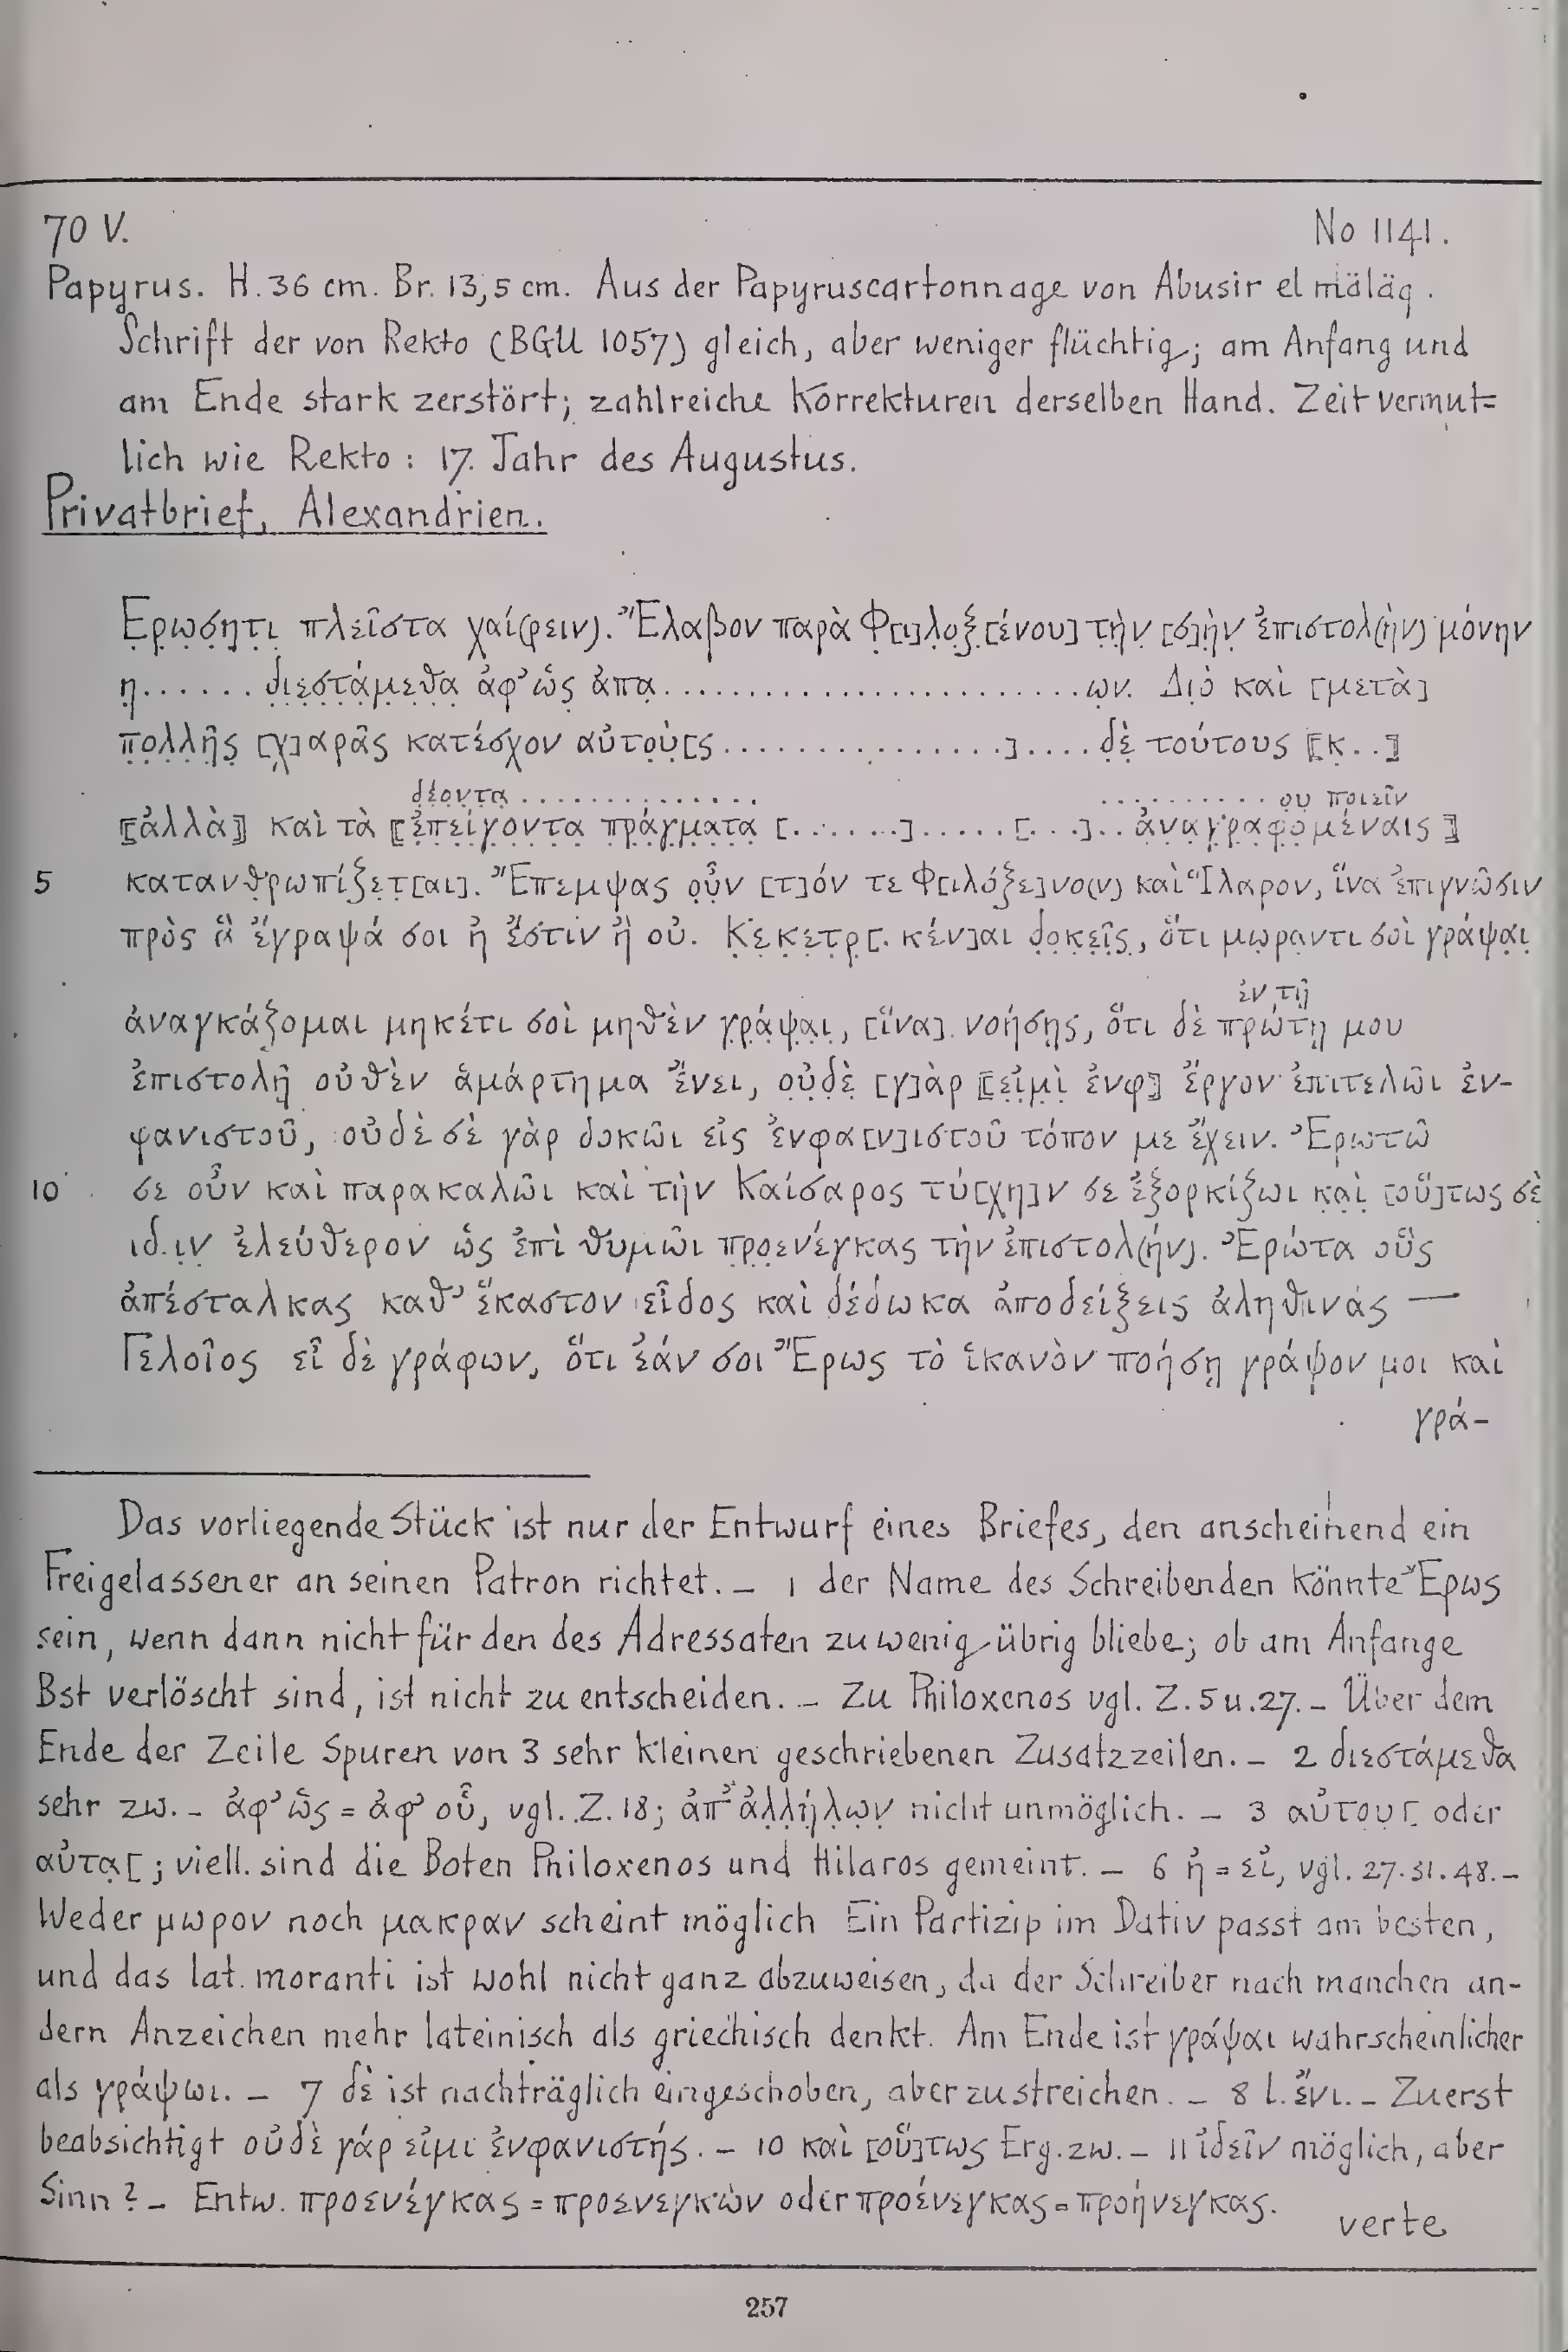 70 V. No 1141.
Papyrus. H. 36 cm. Br. 13,5 cm. Aus der Papyruscartonnage von Abusir el mäläq.
Schrift der von Rekto (BGU 1057) gleich, aber weniger flüchtig; am Anfang und
am Ende stark zerstört; zahlreiche Korrekturen derselben Hand. Zeit vermut=
lich wie Rekto: 17. Jahr des Augustus.
Privatbrief, Alexandrien.
Ẹρ̣ω̣σ̣η̣τι̣ πλεῖστα χαί(ρειν). Ἔλαβον παρὰ Φ̣[ι]λ̣ο̣ξ̣[ένου] τὴ̣ν̣ [σ]ὴ̣ν̣ ἐπιστολ(ὴν) μόνην
η̣...... δ̣ι̣ε̣σ̣τ̣ά̣μ̣ε̣θ̣α̣ ἀφ’ ὧς ἀπα̣..........................ω̣ν. Διὸ̣ καὶ [μετὰ]
π̣ο̣λ̣λ̣ῆ̣ς̣ [χ]αρᾶς κατέσχον αὐτο̣ὺ̣[ς................]....δὲ̣ τούτους ⟦κ..⟧
δέ̣ο̣ντα............... ..........ο̣υ̣ ποιεῖν
⟦ἀλλὰ⟧ καὶ τὰ ⟦ἐ̣π̣ε̣ί̣γ̣ο̣ντα π̣ρ̣ά̣γ̣μ̣α̣τ̣α̣ [.......].....[...]..ἀ̣ν̣α̣γ̣ρ̣α̣φ̣ο̣μ̣έ̣ν̣α̣ι̣ς̣⟧
5 κατανθ̣ρωπίζετ̣[αι]. Ἔπεμψας ο̣ὖ̣ν [τ]όν τε Φ[ιλόξε]νο(ν) καὶ Ἵλαρον, ἵνα ἐπιγνῶσιν
πρὸς ἃ̣ ἔγραψά σοι ἠ ἔστιν ἢ οὐ. Κ̣ε̣κ̣ε̣τ̣ρ̣[. κέν]αι δ̣ο̣κ̣ε̣ῖ̣ς̣, ὅτι μω̣ραντι σοὶ γράψα̣ι̣
ἐν τῆ
ἀναγκάζομαι μηκέτι σοὶ μηθὲν γ̣ρ̣ά̣ψ̣α̣ι̣, [ἵνα] νοήσης, ὅτι δὲ πρώτῃ μου
ἐπιστολῆ οὐθὲν ἁμάρτημα ἔνει, ο̣ὐ̣δ̣ὲ [γ]ὰρ ⟦ε̣ἰ̣μ̣ὶ̣ ἐνφ⟧ ἔργον ἐπιτελῶι ἐν-
φανιστοῦ, οὐδὲ σὲ γὰρ δοκῶι εἰς ἐνφα[ν]ιστοῦ τόπον με ἔχειν. Ἐρωτῶ
10 σε οὖν καὶ παρακαλῶι καὶ τὴν Καίσαρος τύ[χη]ν σε ἐξορκίζωι κ̣α̣ὶ̣ [οὕ]τως σὲ
ιδ.ι̣ν ἐλεύθερον ὡς ἐπὶ θυμῶι π̣ρ̣ο̣ενέγκας τὴν ἐπιστολ(ήν). Ἐρώτα οὓς
ἀπέσταλκας καθ’ ἕκαστον εἶδος καὶ δέδωκα ἀποδείξεις ἀληθινάς —
Γελοῖος εἶ δὲ γράφων, ὅτι ἐάν σοι Ἔρως τὸ ἱκανὸν ποήσῃ γράψον μοι καὶ
γρά-
Das vorliegende Stück ist nur der Entwurf eines Briefes, den anscheinend ein
Freigelassener an seinen Patron richtet. – 1 der Name des Schreibenden könnte Ἔρως
sein, wenn dann nicht für den des Adressaten zu wenig übrig bliebe; ob am Anfange
Bst verlöscht sind, ist nicht zu entscheiden. – Zu Philoxenos vgl. Z. 5 u. 27. – Über dem
Ende der Zeile Spuren von 3 sehr kleinen geschriebenen Zusatzzeilen. – 2 διεστάμεθα
sehr zw. – ἀφ’ ὧς = ἀφ’ οὗ, vgl. Z. 18; ἀπ’ ἀ̣λ̣λ̣ή̣λ̣ω̣ν̣ nicht unmöglich. – 3 αὐτου̣[ oder
αὐτα̣[; viell. sind die Boten Philoxenos und Hilaros gemeint. – 6 ἠ = εἰ, vgl. 27. 31. 48. –
Weder μωρον noch μακραν scheint möglich Ein Partizip im Dativ passt am besten,
und das lat. moranti ist wohl nicht ganz abzuweisen, da der Schreiber nach manchen an-
dern Anzeichen mehr lateinisch als griechisch denkt. Am Ende ist γράψαι wahrscheinlicher
als γράψωι. – 7 δὲ ist nachträglich eingeschoben, aber zu streichen. – 8 l. ἔνι. – Zuerst
beabsichtigt οὐδὲ γάρ εἰμι ἐνφανιστής. – 10 καὶ [οὕ]τως Erg. zw. – 11 ἰδεῖν möglich, aber
Sinn? – Entw. προενέγκας = προενεγκὼν oder προένεγκας = προήνεγκας.
verte
257